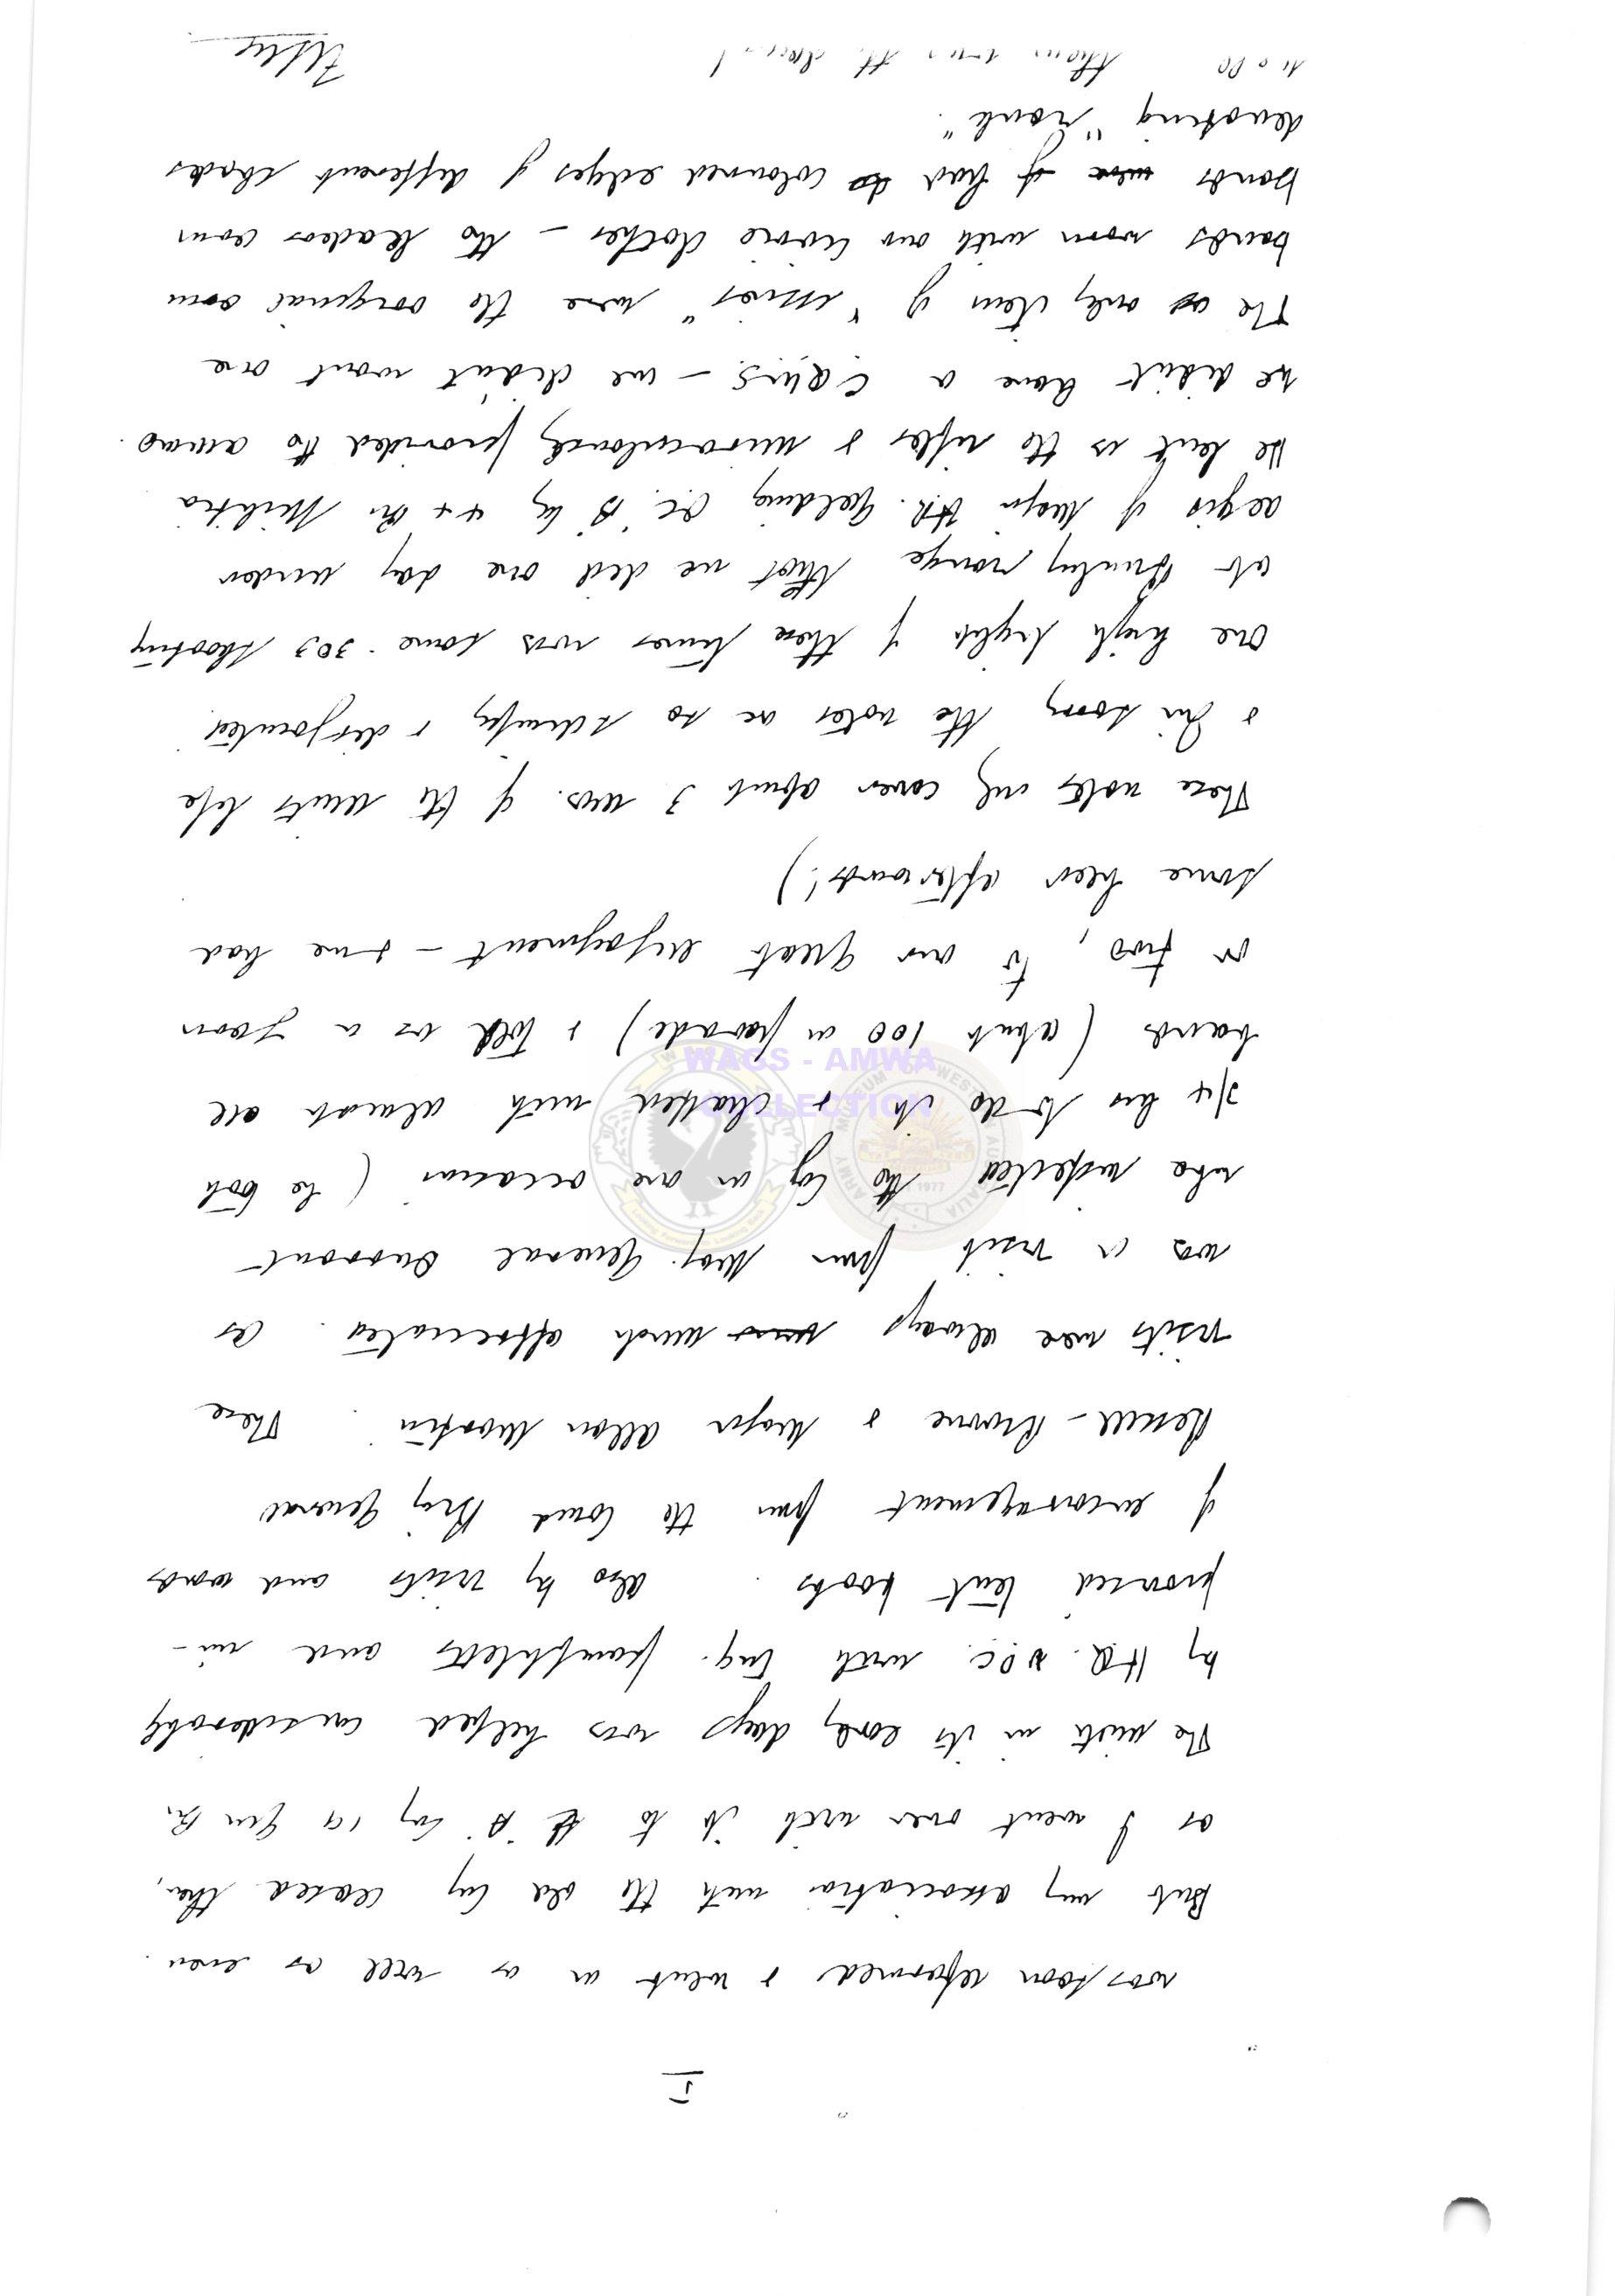 5
was soon reformed & went on as well as ever.
But my association with the old Coy ceased then,
as I went over with it to "B" Coy 19 Gen Bn.
The unit in its early days was helped considerably
by H.Q. V.D.C. with trg. pamphlets and un-
promised text books. Also by visits and words
of encouragement from the Comd Brig General
Bessell-Browne & Major Allan Martin. These
visits were always much appreciated. As
was a visit from Maj. General Durrant
who inspected the Coy on one occasion (he took
2¼ hrs to do it & chatted with almost all
hands (about 100 on parade) & told us a yarn
or two, to our great enjoyment – & we had
some beer afterwards!)
These notes only cover about 3 mos. of the units life
& I'm sorry the notes are so scrappy & disjointed.
One high light of these times was some .303 shooting
at Bunbury range that we did one day under
aegis of Major H.R. Fielding OC "B" Coy 44 Bn Militia
He lent us the rifles & miraculously provided the ammo.
We didn't have a C.Q.M.S. – we didn't want one
The only item of "issues" were the original arm
bands worn with our civvie clothes – the leaders arm
bands had coloured edges of different shades
denoting "rank".
WAGS - AMWA
COLLECTION
1977